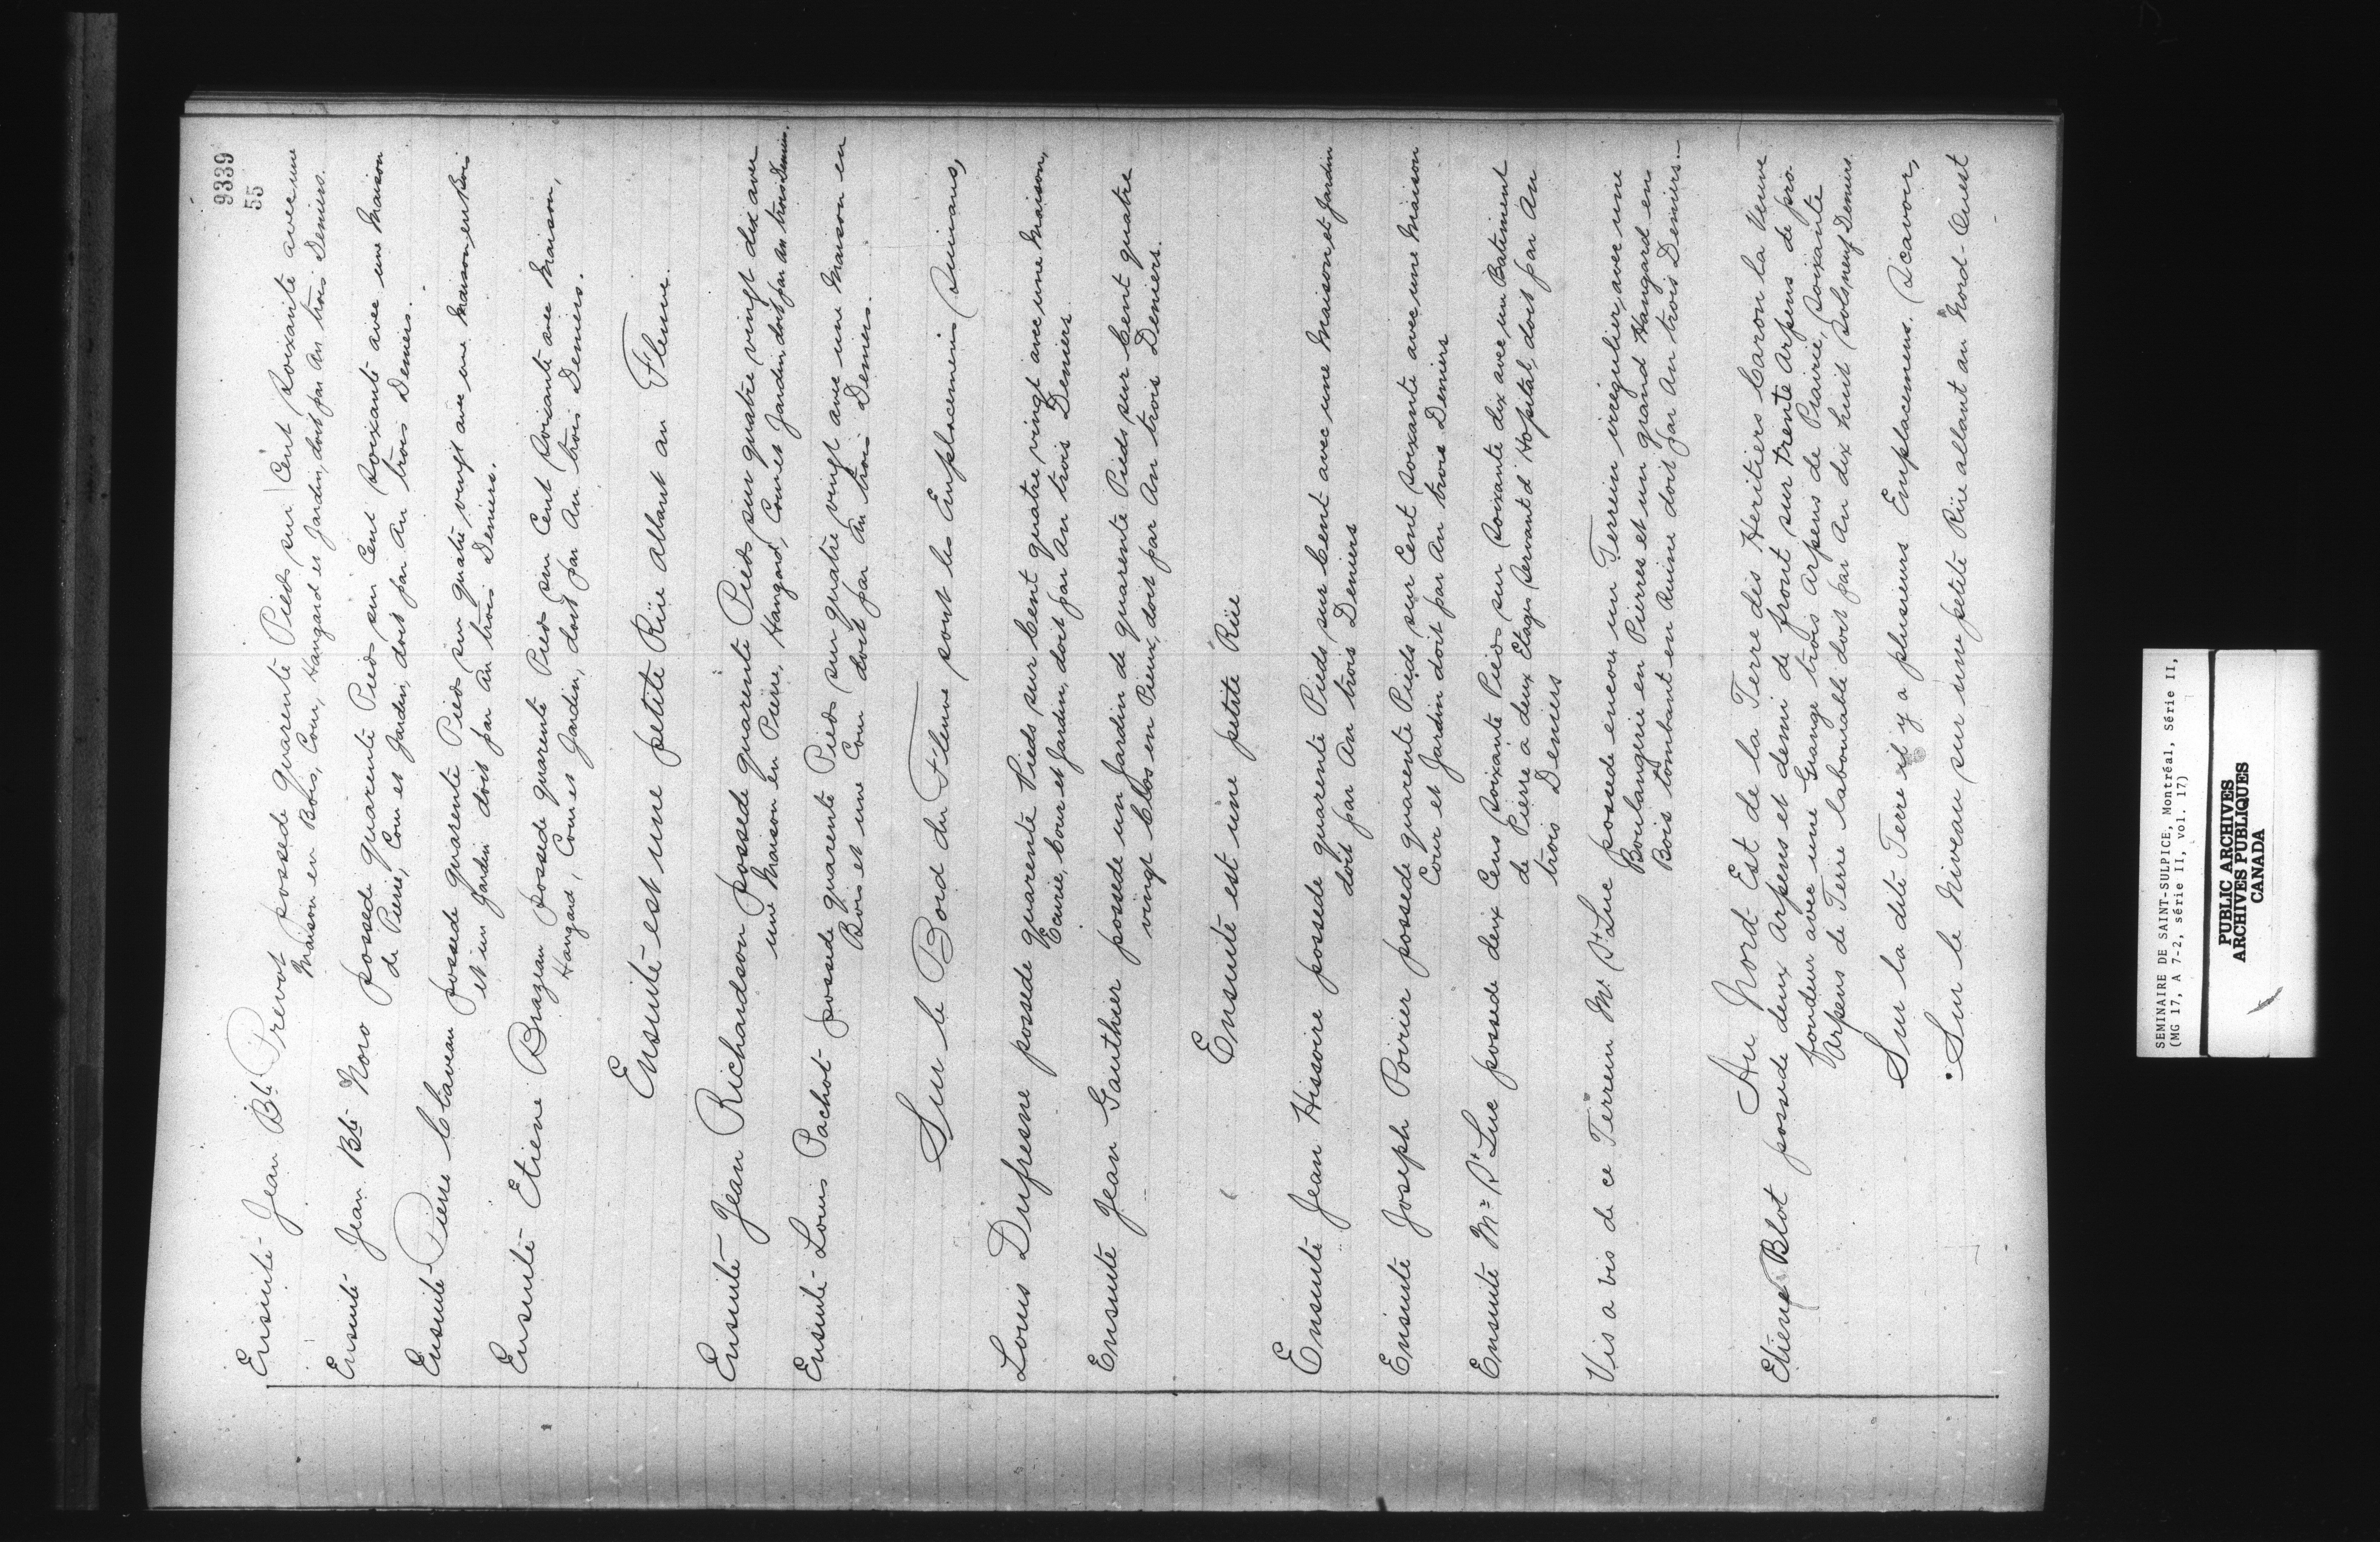 9339
55
Ensuite Jean Bte Prevot possede quarente Pieds sur Cent soixante avec une
Maison en Bois, Cour, Hangard et Jardin, doit par An trois Deniers.
Ensuite Jean Bte Noro possede quarente Pieds sur Cent soixante avec une Maison
de Pierre, Cour et Jardin, doit par An trois Deniers.
Ensuite Pierre Claveau possede quarente Pieds sur quatre vingt avec une Maison en Bois
et un Jardin doit par An trois Deniers.
Ensuite Etiene Brazeau possede quarente Pieds sur Cent soixante avec Maison,
Hangard, Cour et Jardin, doit par An trois Deniers.
Ensuite est une petite Rüe allant au Fleuve.
Ensuite Jean Richardson possede quarente Pieds sur quatre vingt dix avec
une Maison en Pierre, Hangard, Cour et Jardin doit par An trois Deniers.
Ensuite Louis Pachot possede quarente Pieds sur quatre vingt avec une Maison en
Bois et une Cour doit par An trois Deniers.
Sur le Bord du Fleuve sont les Emplacemens Suivans,
Louis Dufresne possede quarente Pieds sur Cent quatre vingt avec une Maison,
Ecurie, Cour et Jardin, doit par An trois Deniers
Ensuite Jean Gauthier possede un Jardin de quarente Pieds sur Cent quatre
vingt Clos en Pieux, doit par An trois Deniers.
Ensuite est une petite Rüe
Ensuite Jean Hissoire possede quarente Pieds sur Cent avec une Maison et Jardin
doit par An trois Deniers
Ensuite Joseph Poirier possede quarente Pieds sur Cent soixante avec une Maison
Cour et Jardin doit par An trois Deniers
Ensuite Mr St Luc possede deux Cens soixante Pieds sur soixante dix avec un Batiment
de Pierre a deux Etages servant d'Hopital, doit par An
trois Deniers
Vis a vis de ce Terrein Mr St Luc possede encore un Terrein irregulier, avec une
Boulangerie en Pierres et un grand Hangard en
Bois tombant en Ruine doit par An trois Deniers.-
Au Nord Est de la Terre des Heritiers Caron la Veuve
Etiene Blot possede deux Arpens et demi de front sur trente Arpens de pro
fondeur avec une Grange trois Arpens de Prairie, Soixante
Arpens de Terre labourable doit par An dix huit Sols, neuf Deniers.
Sur la dite Terre il y a plusieurs Emplacemens. Scavoir,
Sur le Niveau sur une petite Rüe allant au Nord-Ouest
SEMINAIRE DE SAINT-SULPICE, Montréal, Série II,
(MG 17, A 7-2, série II, vol. 17)
PUBLIC ARCHIVES
ARCHIVES PUBLIQUES
CANADA